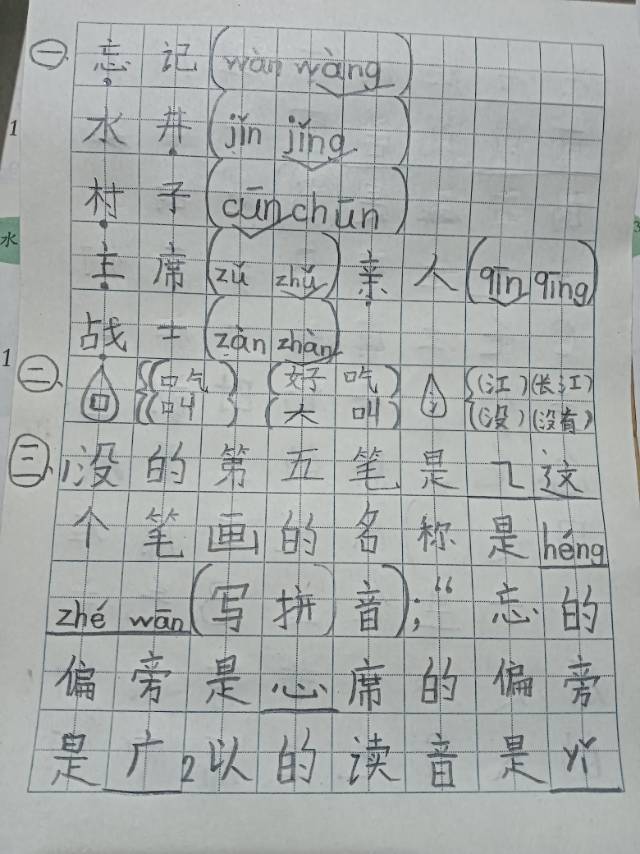 一、忘记(wàn wàng)
水井(jǐn jǐng)
村子(cūn chūn)
主席(zǔ zhǔ) 亲人(qīn qīng)
战士(zàn zhàn)
二、口{(口气)(好吃) {(叫)(大叫) 氵{(江)(长江) {(没)(没有)
三、1没的第五笔是㇈这
个笔画的名称是héng
zhé wān(写拼音);“忘的
偏旁是心席的偏旁
是广2以的读音是yǐ
1
水
1
3